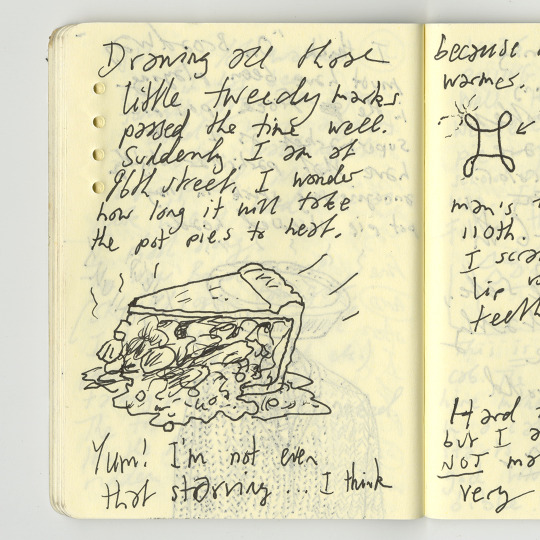 Drawing all those
little tweedy marks
passed the time well.
Suddenly I am at
96th street. I wonder
how long it will take
the pot pies to heat.
Yum! I'm not even
that starving ... I think
because
warmes.
man's
110th.
I
lip
teeth
Hard
but I
NOT
very